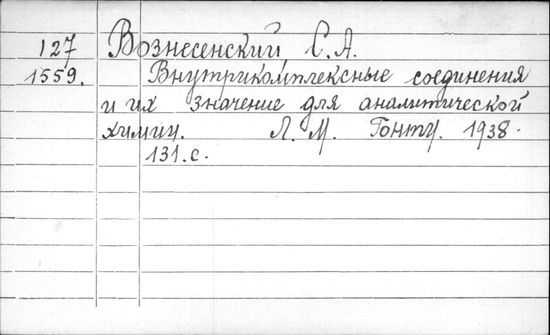 127 Вознесенский С.А.
1559. Внутрикомплексные соединения
и их значение для аналитической
химии. Л. М. Гонти. 1938.
131.с.